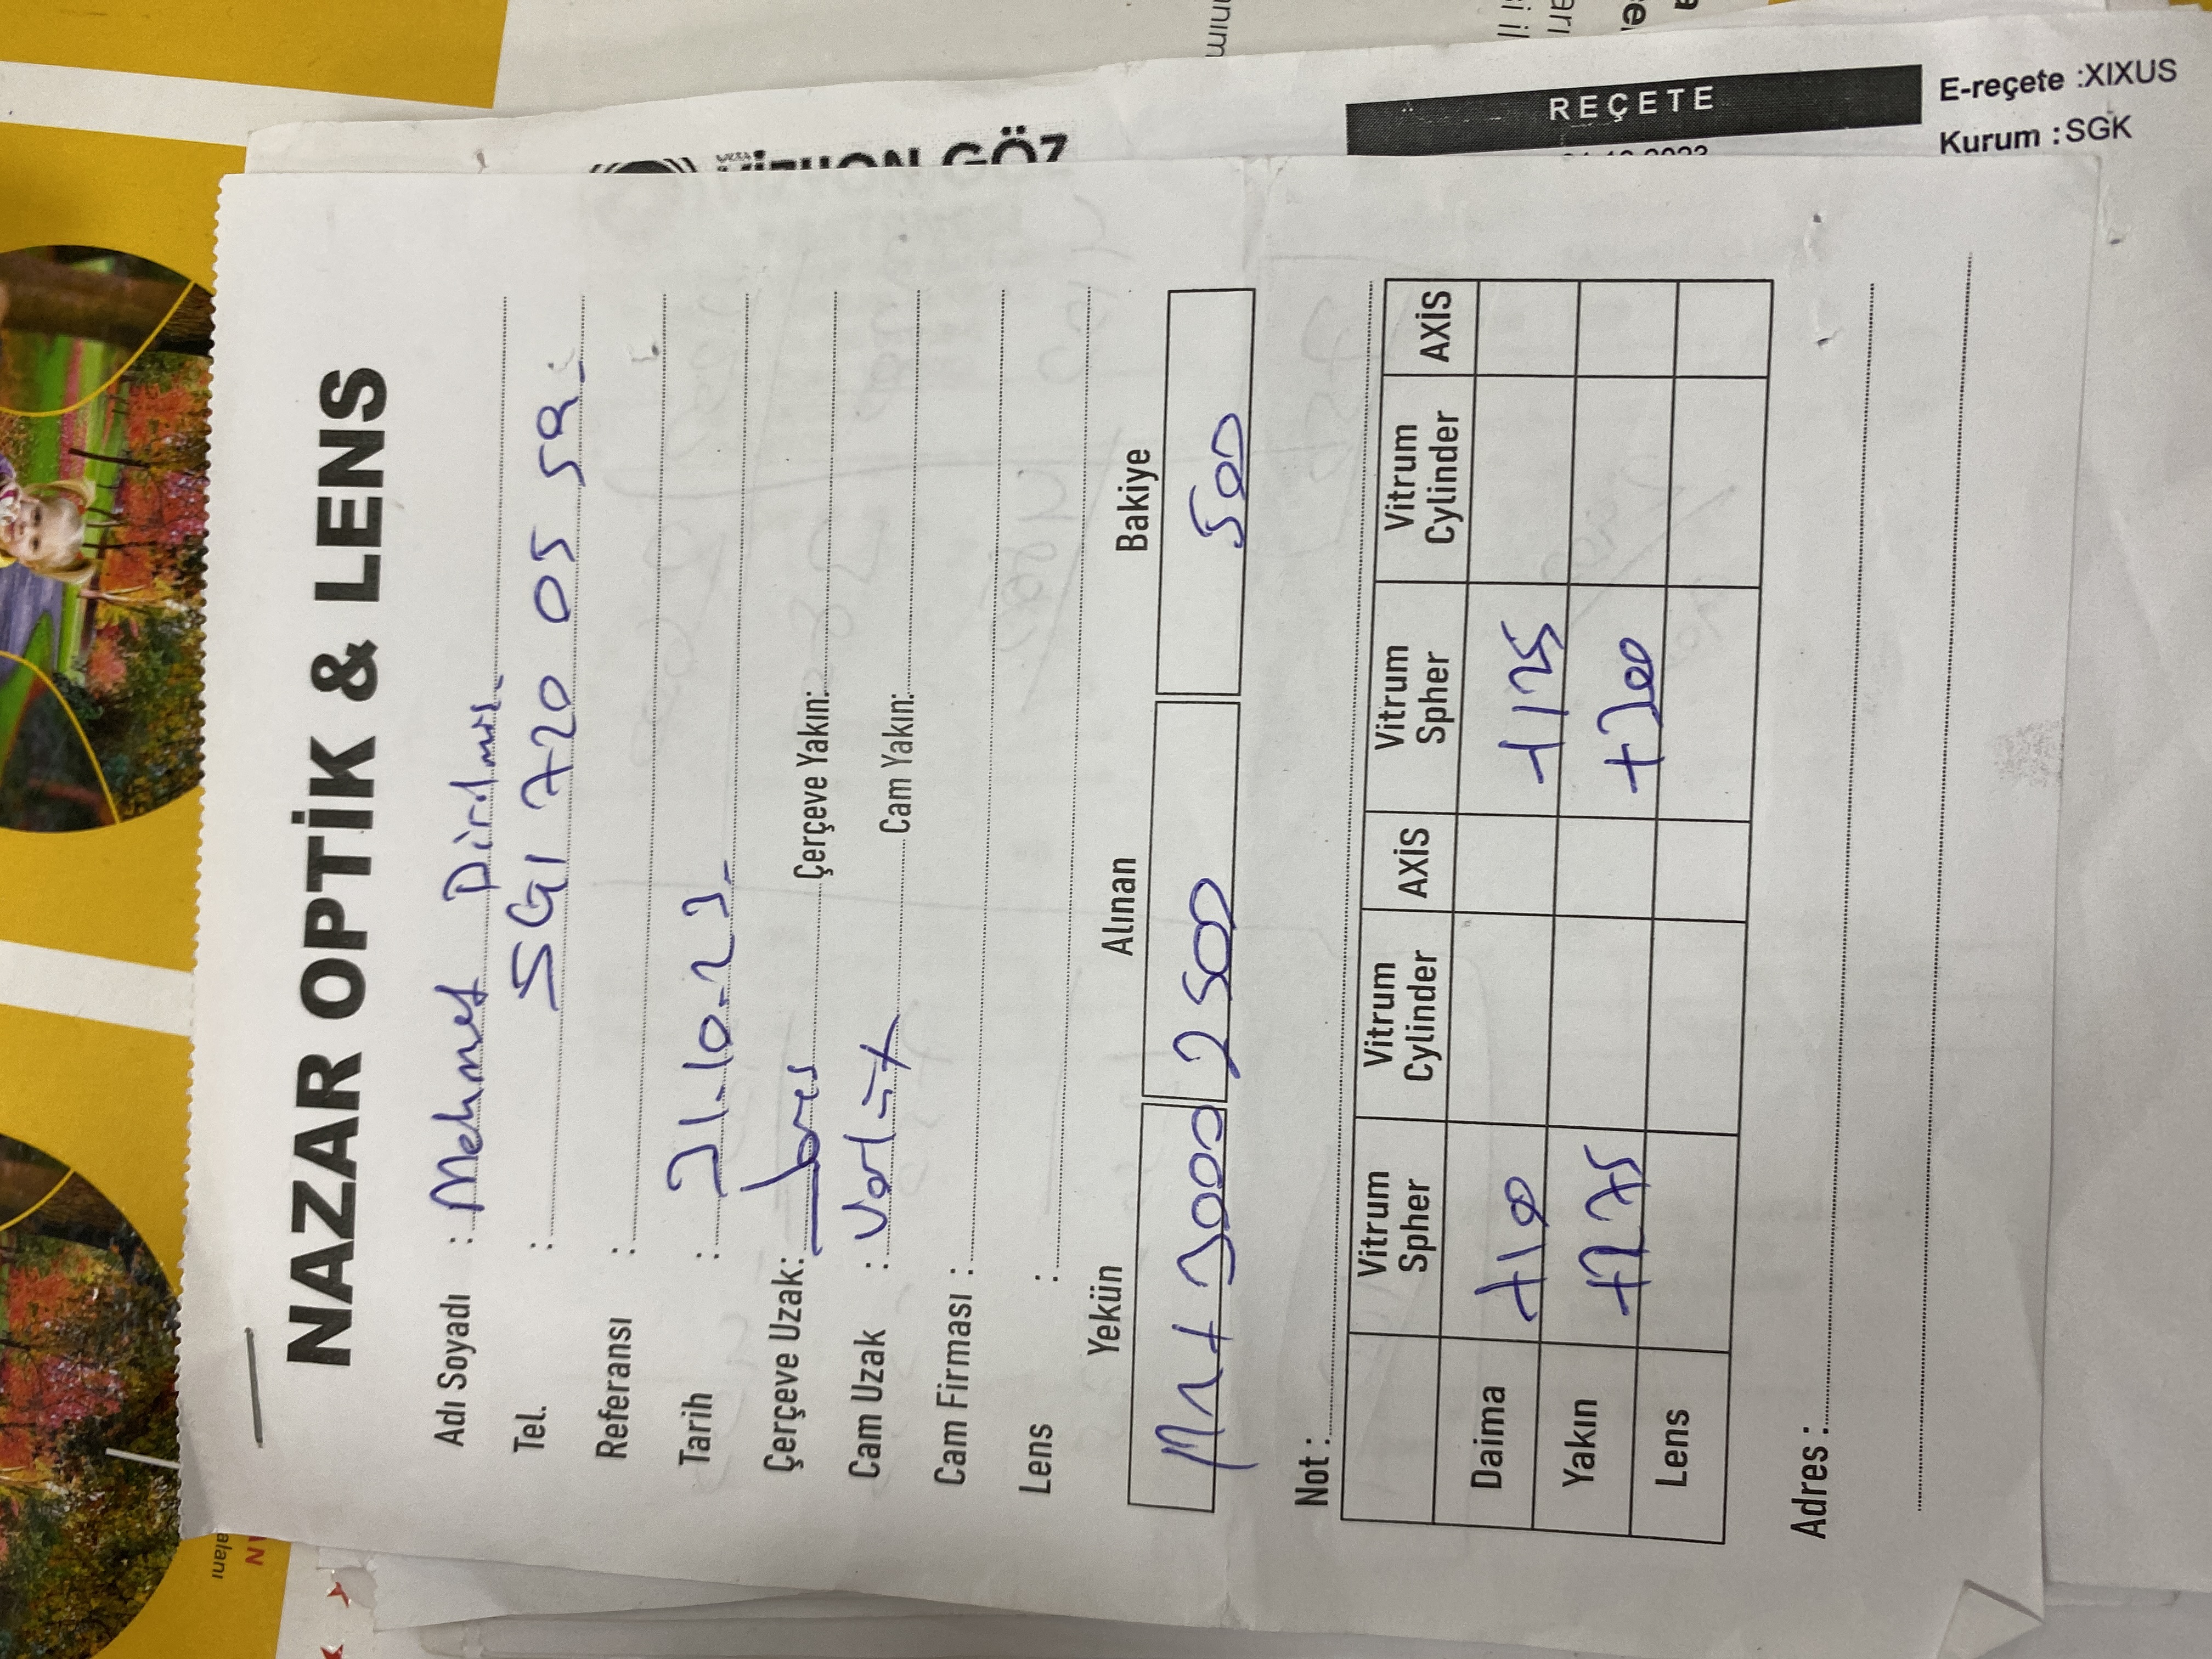 NAZAR OPTİK & LENS
Adı Soyadı : Mehmet Dirilmiş
Tel. : 561 720 05 59
Referansı :
Tarih : 21.10.23
Çerçeve Uzak:
Çerçeve Yakın:
Cam Uzak :
Cam Yakın:
Cam Firması :
Lens :
Yekün Alınan Bakiye
3000 2500 500
Not :
Vitrum Spher Vitrum Cylinder AXİS Vitrum Spher Vitrum Cylinder AXİS
Daima +100 +125
Yakın +275 +300
Lens
Adres :
REÇETE
E-reçete :XIXUS
Kurum :SGK
alanı